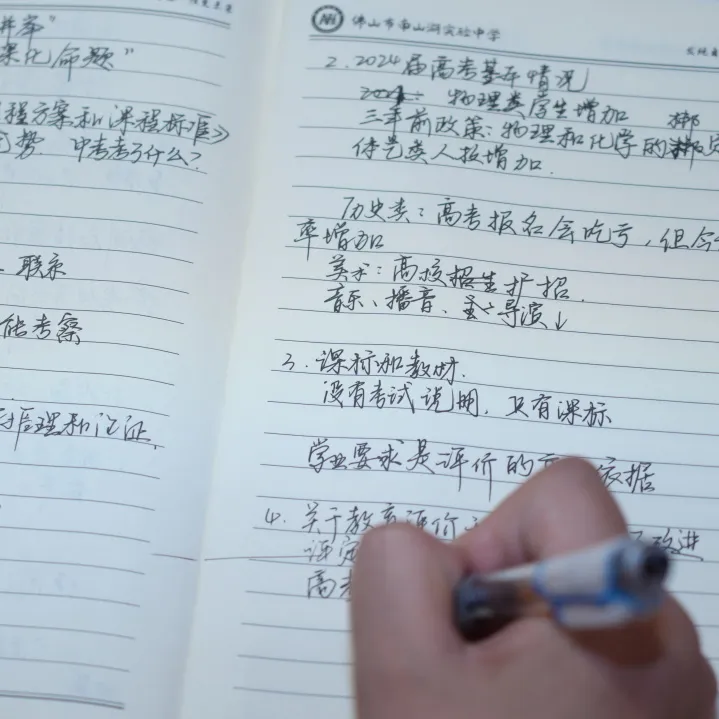 果化命题”
程方案和课程标准》
势 中考考了什么?
联系
能考察
推理和论证
佛山市南山湖实验中学
2. 2024届高考基本情况
物理类学生增加
三年前政策:物理和化学的绑
体艺类人数增加.
历史类:高考报名会吃亏,但今
率增加
美术:高校招生扩招.
音乐、播音、导演↓
3. 课标和教材.
没有考试说明,只有课标
学业要求是评价的 依据
4. 关于教育评价 改进
高考